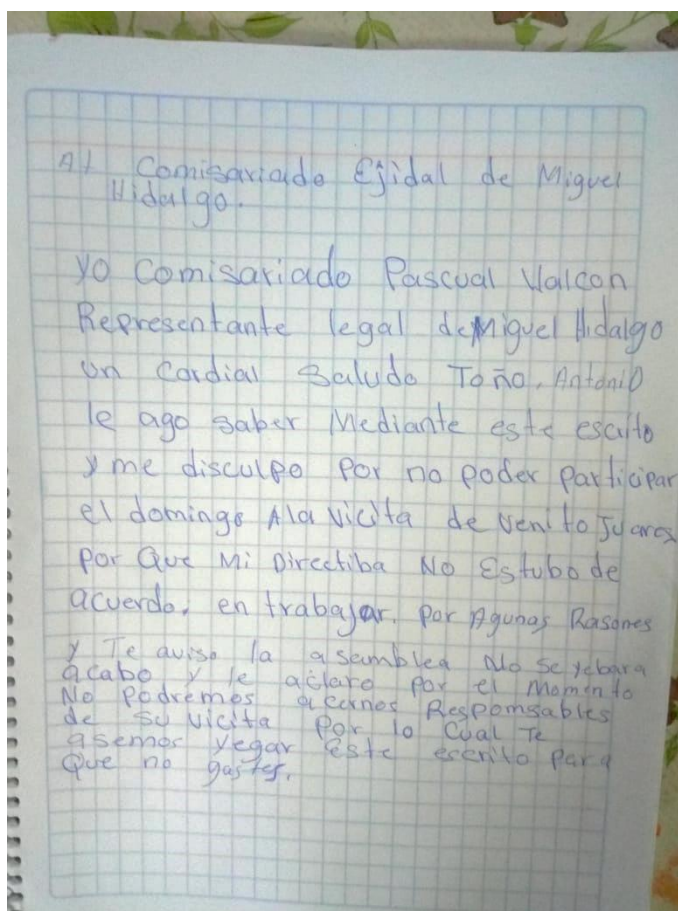 Al Comisariado Ejidal de Miguel
Hidalgo.
yo Comisariado Pascual Walcon
Representante legal de Miguel Hidalgo
un Cordial Saludo Toño, Antonio
le ago saber Mediante este escrito
y me disculpo por no poder participar
el domingo Ala vicita de venito Juares
por Que Mi Directiba No Estubo de
acuerdo. en trabajar. por Agunas Rasones
y Te aviso la asamblea No se yebara
acabo y le aclaro por el Momento
No podremos acernos Responsables
de su vicita Por lo Cual Te
asemos yegar este escrito para
Que no gastes.